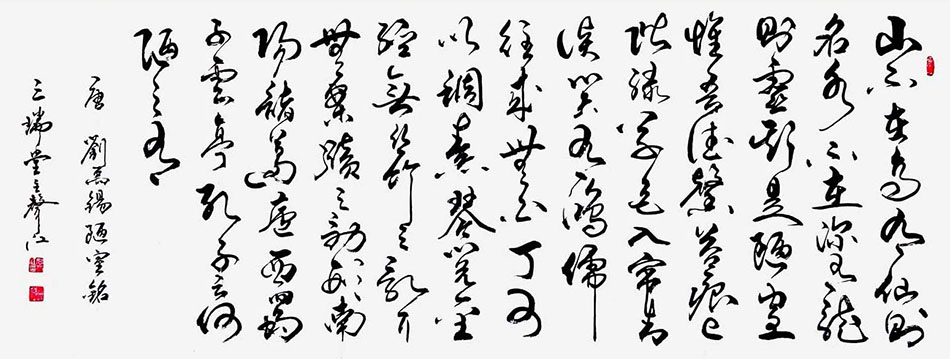 山不在高有仙則
名水不在深有龍
則靈斯是陋室
惟吾德馨苔痕上
階綠草色入簾青
談笑有鴻儒
往來無白丁可
以調素琴閱金
經無絲竹之亂耳
無案牘之勞形南
陽諸葛廬西蜀
子雲亭孔子云何
陋之有
唐 劉禹錫陋室銘
三瑞堂主聲江